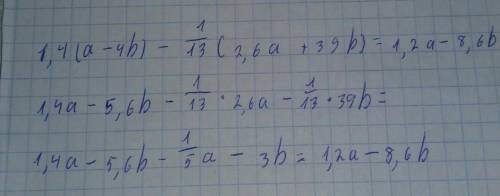 1,4(a-4b) - 1/13 (2,6a + 39b) = 1,2a - 8,6b
1,4a - 5,6b - 1/13 · 2,6a - 1/13 · 39b =
1,4a - 5,6b - 1/5 a - 3b = 1,2a - 8,6b